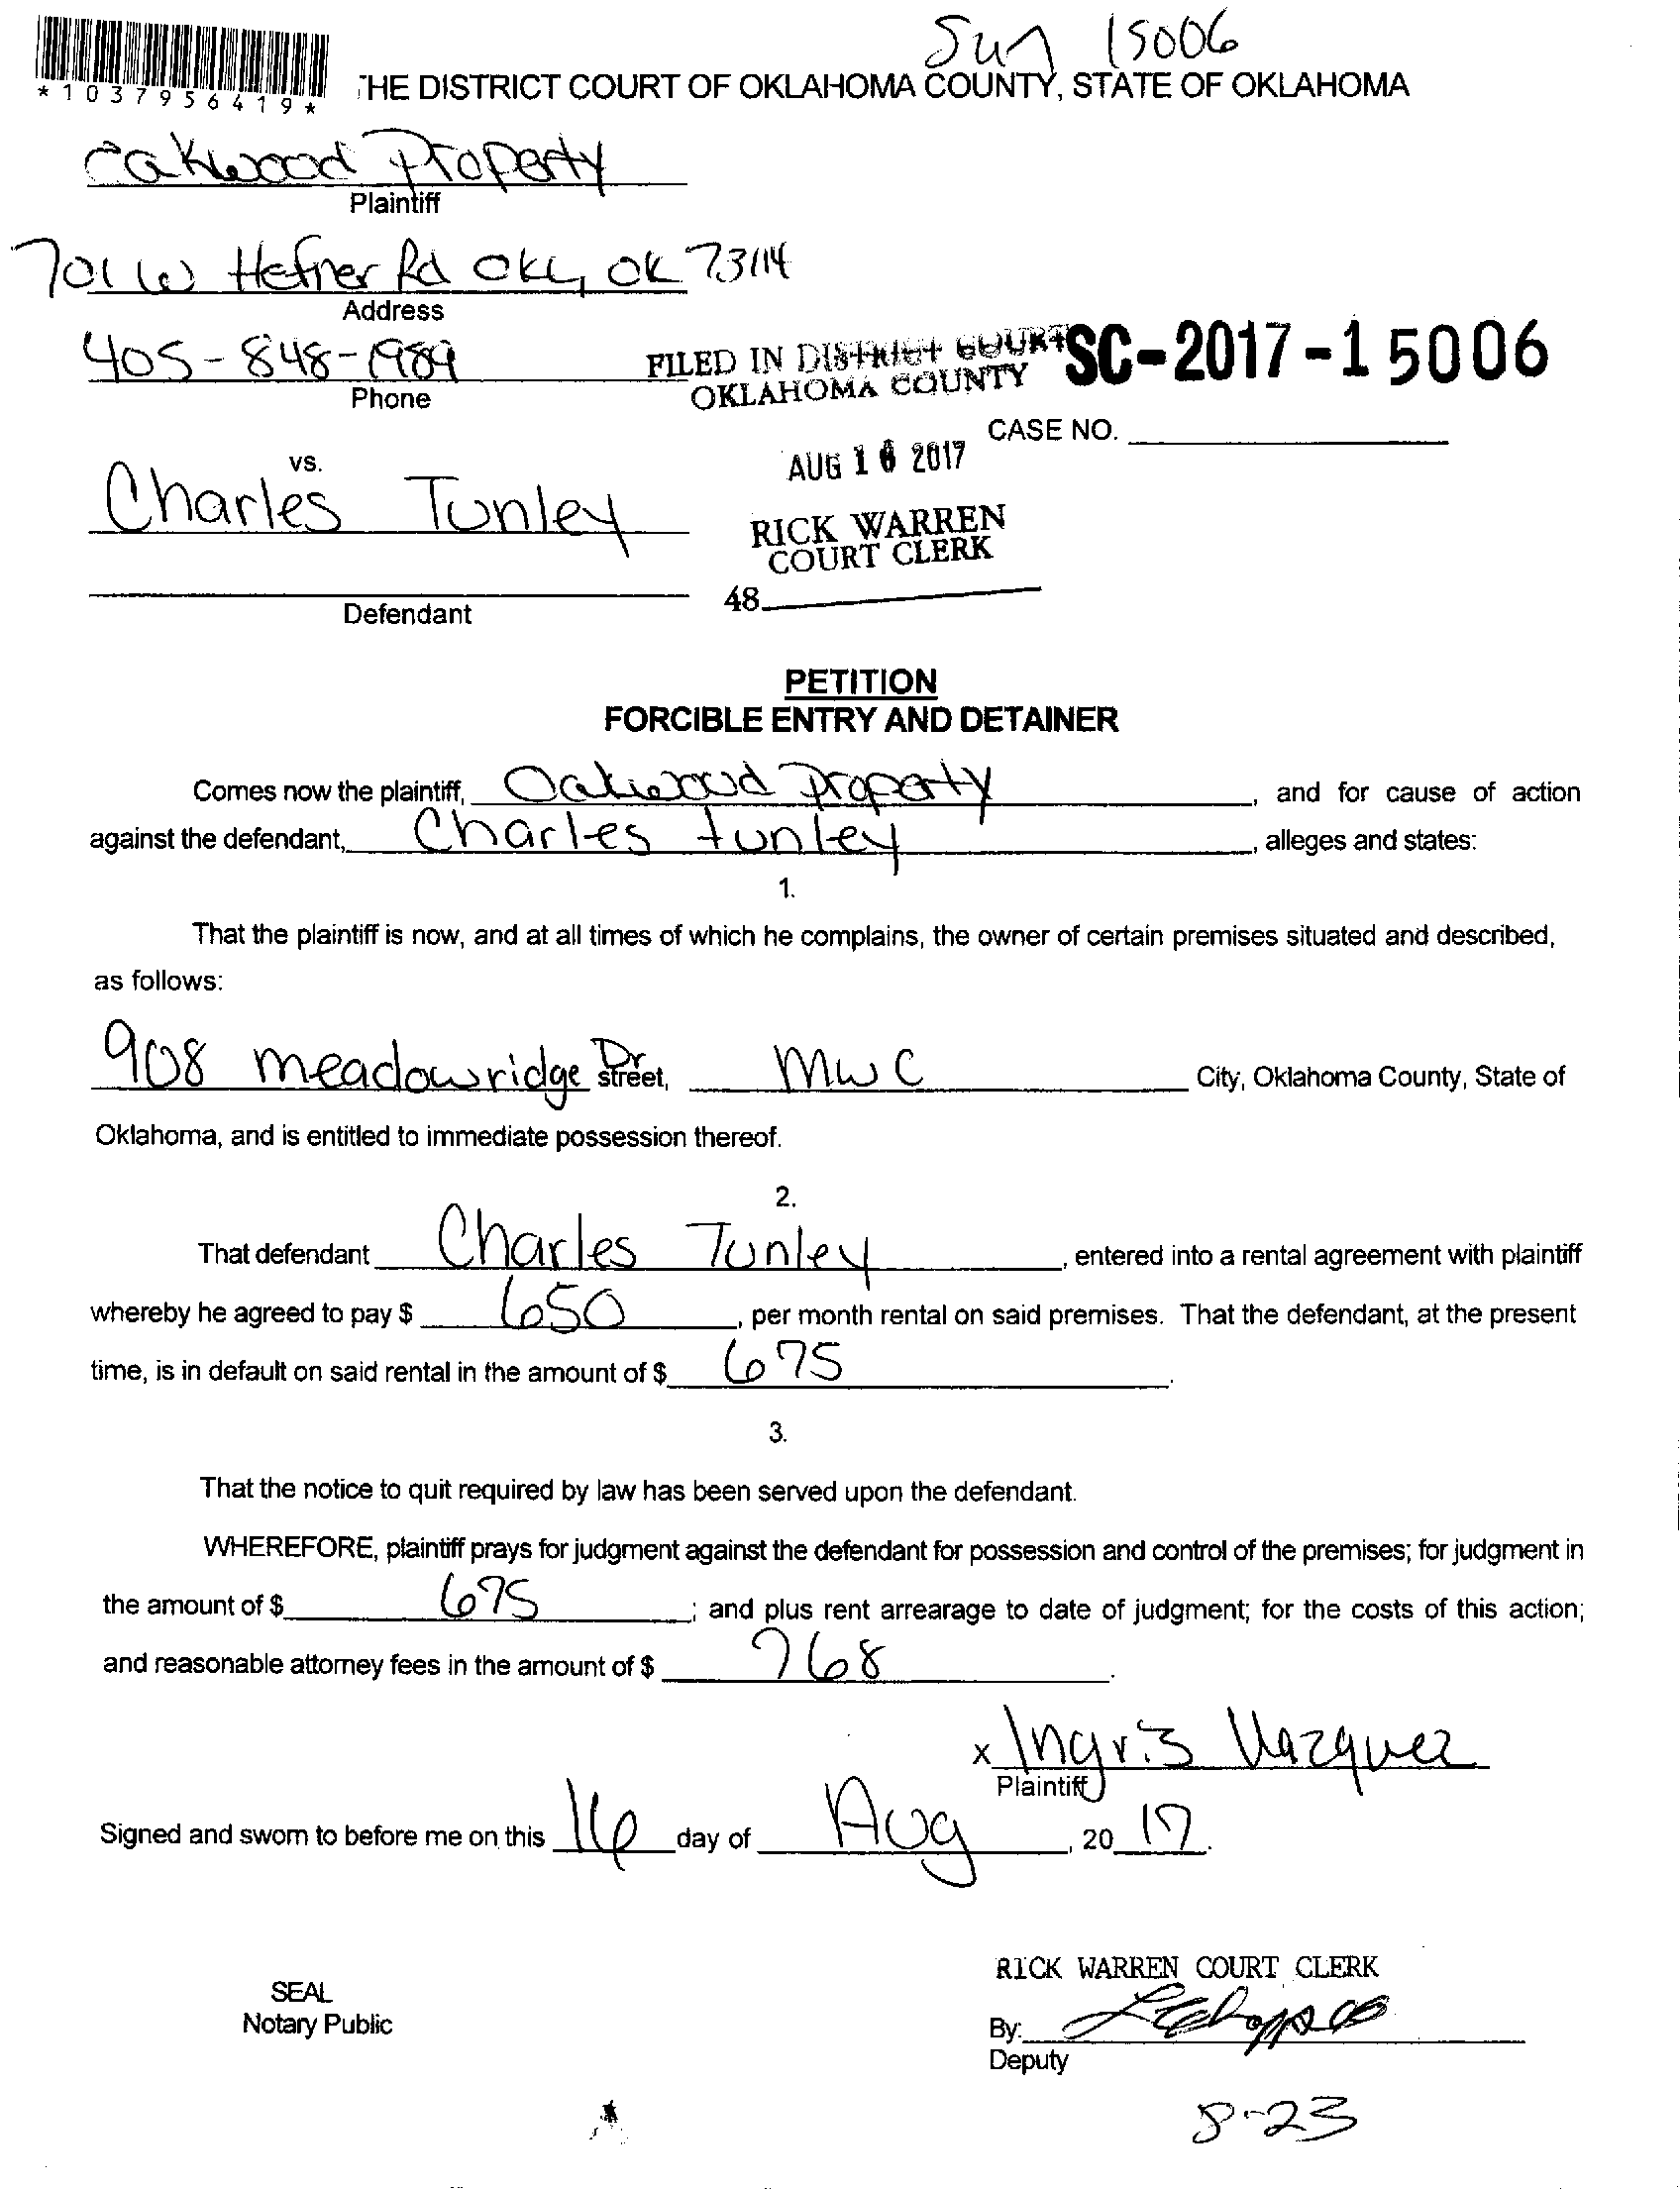 Sum 15006
*1037956419*
THE DISTRICT COURT OF OKLAHOMA COUNTY, STATE OF OKLAHOMA
Oakwood Property
Plaintiff
701 W Hefner Rd OKC, OK 73114
Address
405-848-1989
Phone
FILED IN DISTRICT COURT
OKLAHOMA COUNTY
SC-2017-15006
CASE NO.
AUG 16 2017
vs.
Charles Tunley
RICK WARREN
COURT CLERK
48
Defendant
PETITION
FORCIBLE ENTRY AND DETAINER
Comes now the plaintiff, Oakwood Property, and for cause of action
against the defendant, Charles tunley, alleges and states:
1.
That the plaintiff is now, and at all times of which he complains, the owner of certain premises situated and described,
as follows:
908 meadowridge Dr street, MWC City, Oklahoma County, State of
Oklahoma, and is entitled to immediate possession thereof.
2.
That defendant Charles Tunley, entered into a rental agreement with plaintiff
whereby he agreed to pay $ 650, per month rental on said premises. That the defendant, at the present
time, is in default on said rental in the amount of $ 675.
3.
That the notice to quit required by law has been served upon the defendant.
WHEREFORE, plaintiff prays for judgment against the defendant for possession and control of the premises; for judgment in
the amount of $ 675; and plus rent arrearage to date of judgment; for the costs of this action;
and reasonable attorney fees in the amount of $ 768.
x Ingris Vazquez
Plaintiff
Signed and sworn to before me on this 16 day of Aug, 20 17.
RICK WARREN COURT CLERK
SEAL
Notary Public
By:
Deputy
8-23